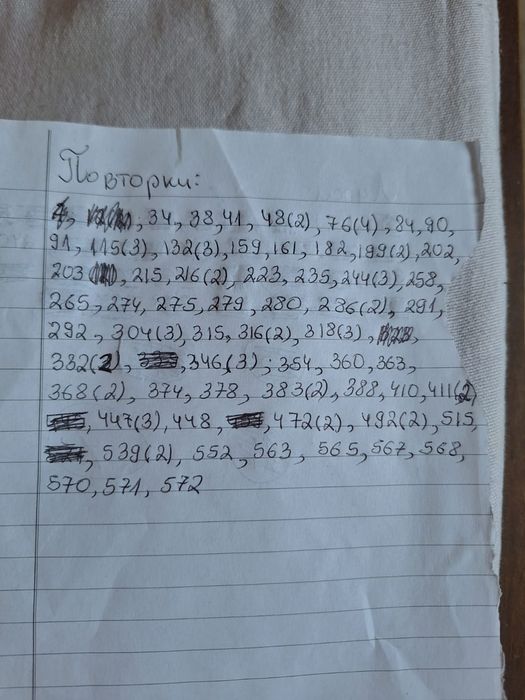 Повторки:
34, 38, 41, 48(2), 76(4), 84, 90,
91, 115(3), 132(3), 159, 161, 182, 199(2), 202,
203, 215, 216(2), 223, 235, 244(3), 258,
265, 274, 275, 279, 280, 286(2), 291,
292, 304(3), 315, 316(2), 318(3),
382(2), 346(3); 354, 360, 363,
368(2), 374, 378, 383(2), 388, 410, 411(2)
447(3), 448, 472(2), 492(2), 515,
539(2), 552, 563, 565, 567, 568,
570, 571, 572